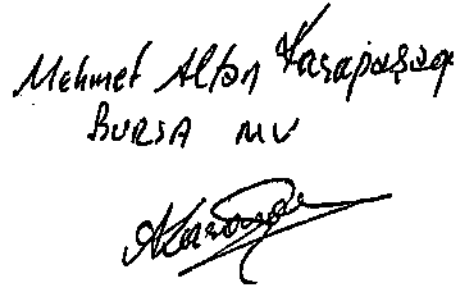 Mehmet Altan Karapaşaoğ
BURSA MV